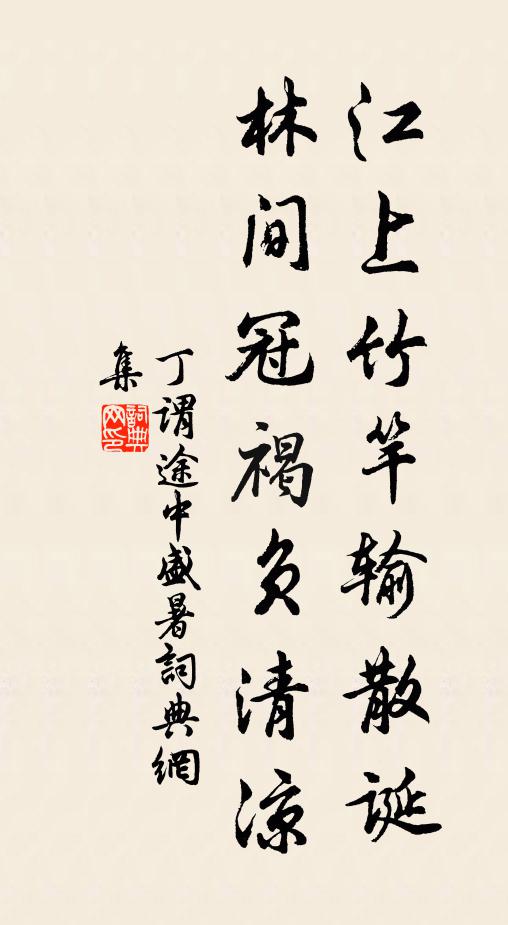 江上竹竿输散诞
林间冠褐负清凉
丁谓途中盛暑詞典網
集
詞典网印